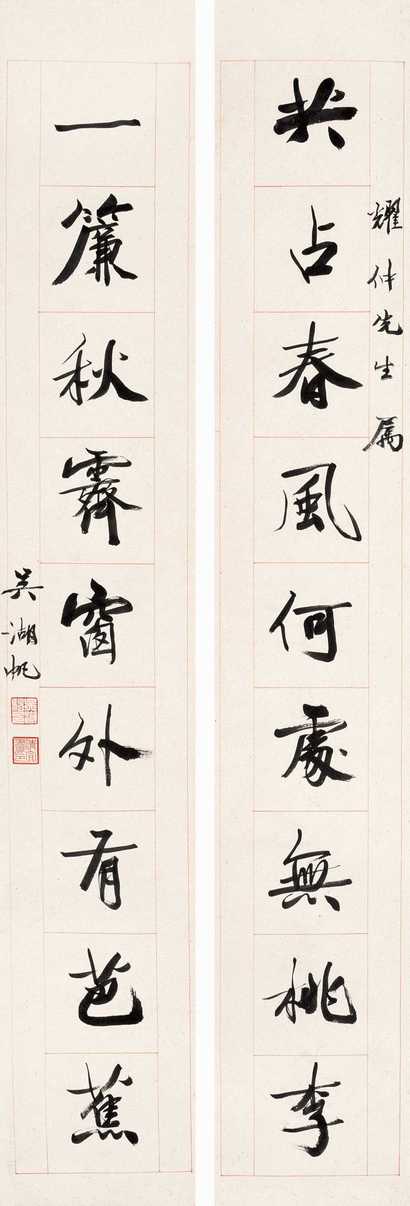 耀仲先生属
共占春風何處無桃李
一簾秋霽窗外有芭蕉
吳湖帆